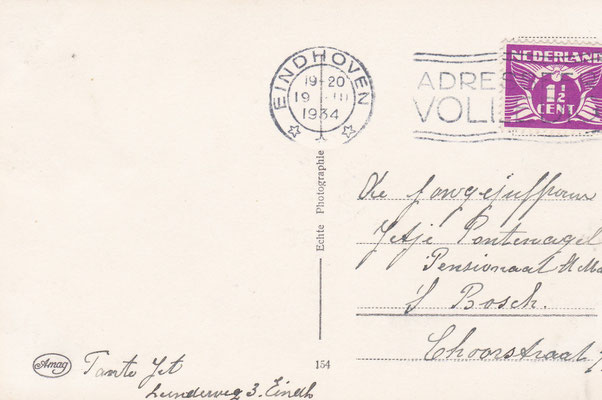 EINDHOVEN
19-20
19 III
1934
ADRES
VOLL
NEDERLAND
1½
CENT
Echte Photographie
De Jongejuffrouw
Jetje Pontenagel
Pensionaat
'S Bosch.
Choorstraat
Amag
154
Tante Jet
3. Eindh